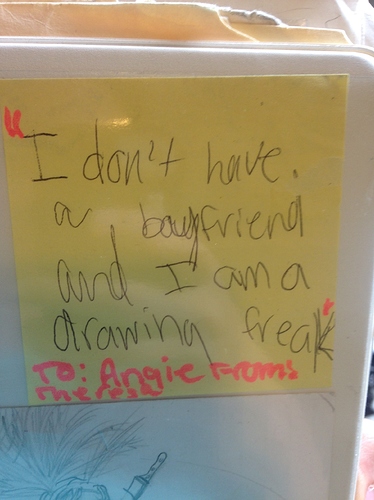 "I don't have
a boyfriend
and I am a
drawing freak"
To: Angie From:
Theresa